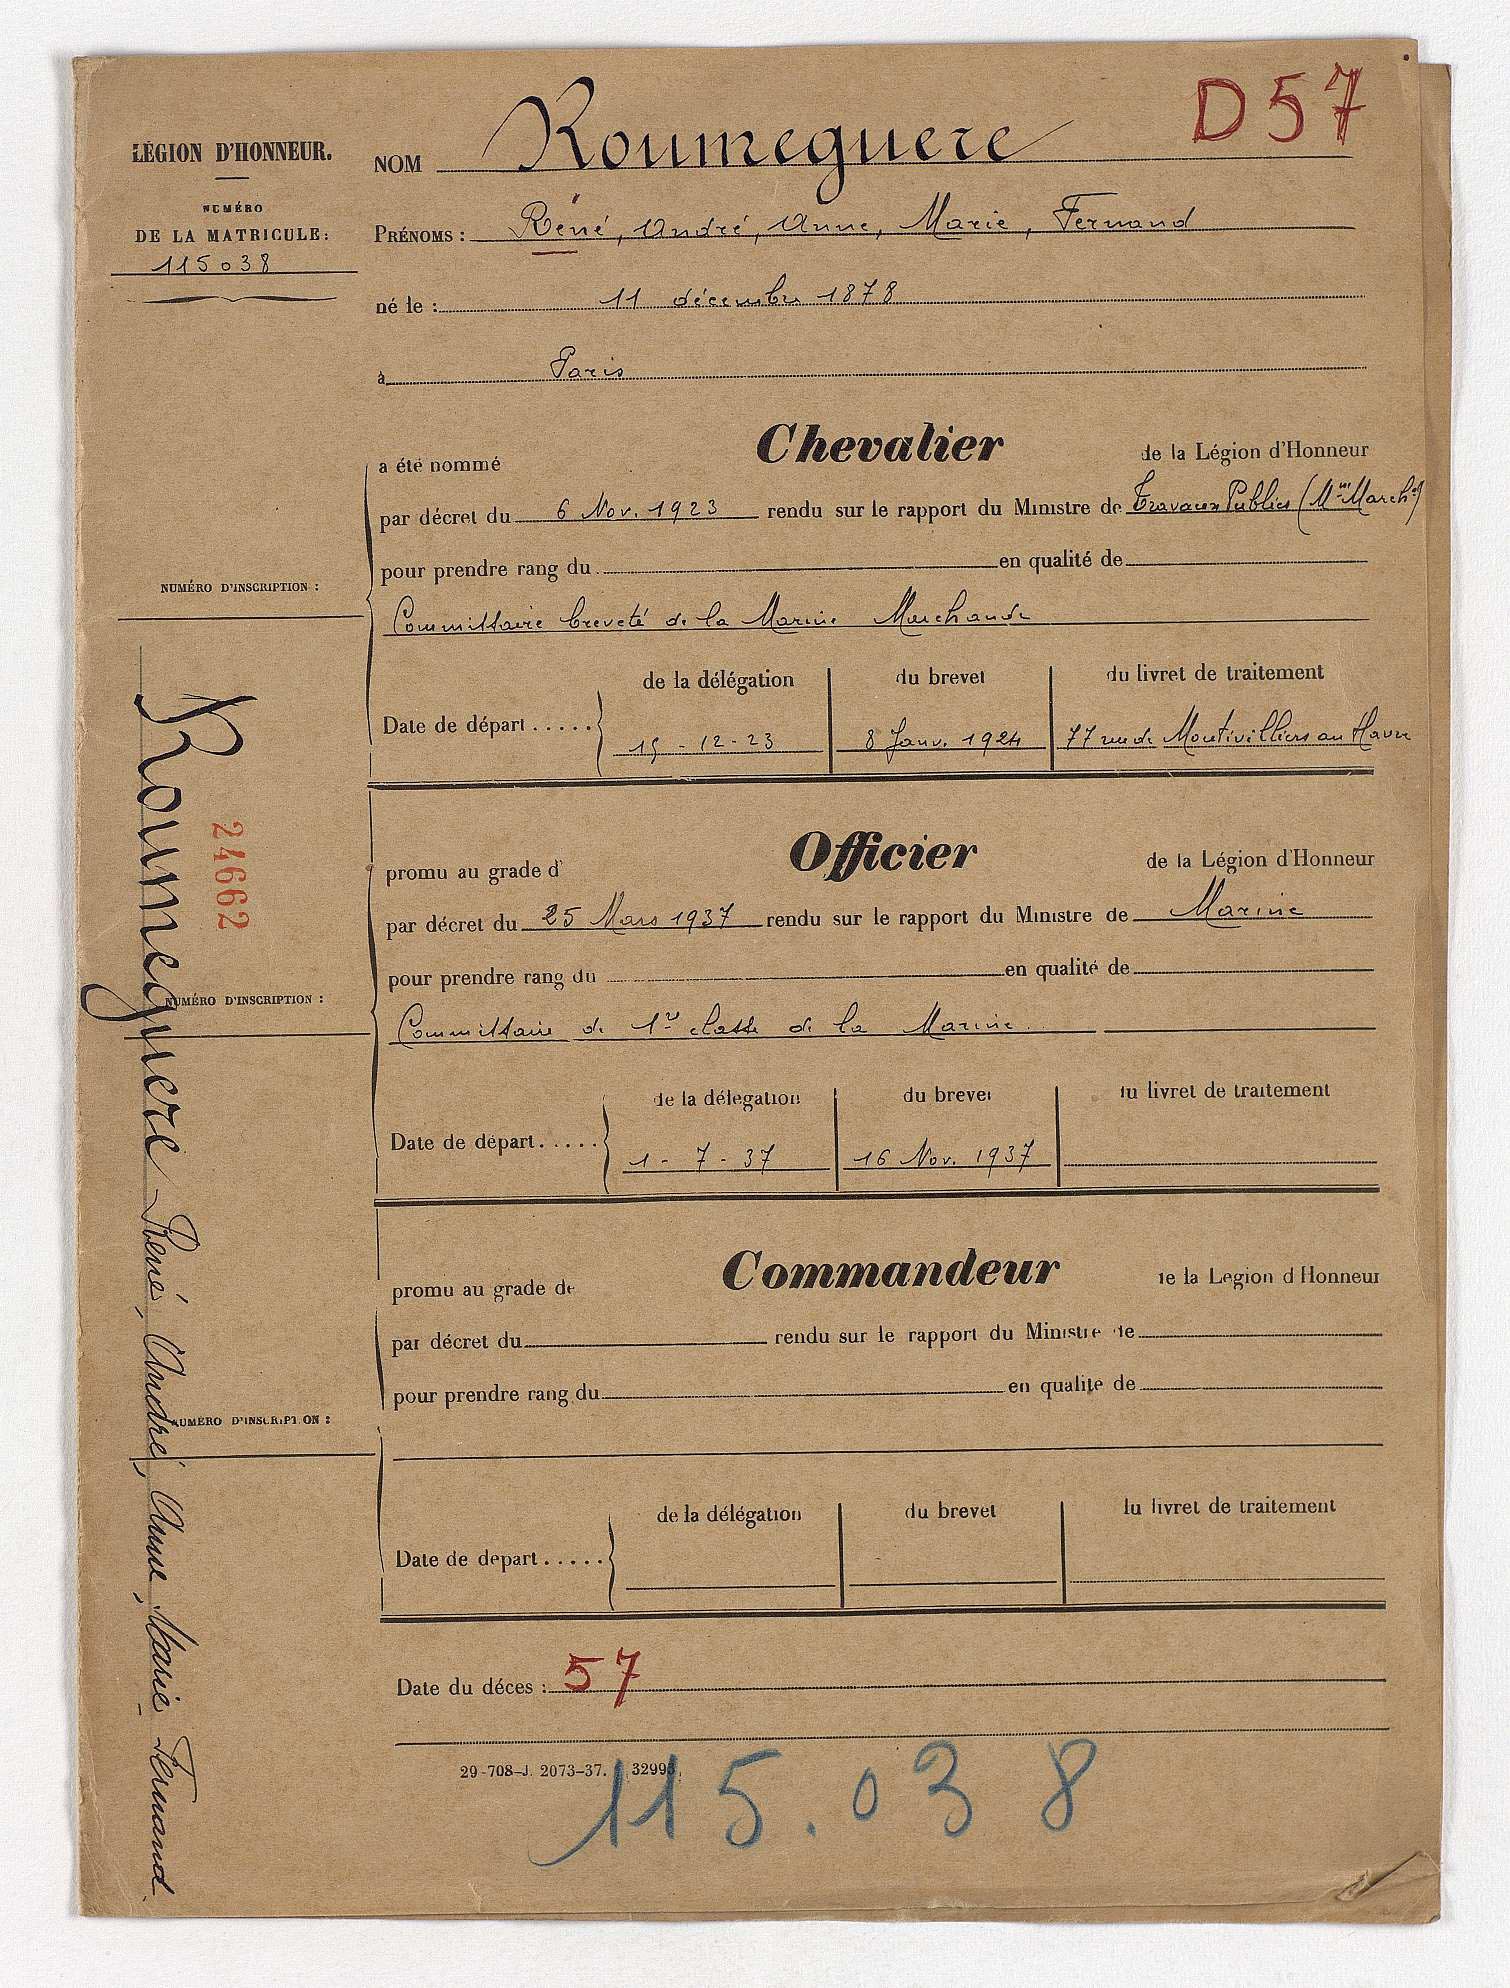 D 57
LÉGION D'HONNEUR.
NUMÉRO
DE LA MATRICULE:
115038
NOM Roumeguere
PRÉNOMS: René, André, Anne, Marie, Fernand
né le : 11 décembre 1878
à Paris
a été nommé Chevalier de la Légion d'Honneur
par décret du 6 Nov. 1923 rendu sur le rapport du Ministre de Travaux Publics (Mne Marchde)
pour prendre rang du en qualité de
NUMÉRO D'INSCRIPTION :
Commissaire breveté de la Marine Marchande
de la délégation du brevet du livret de traitement
Date de départ ..... 15-12-23 8 Janv. 1924 77 rue de Montivilliers au Havre
promu au grade d' Officier de la Légion d'Honneur
par décret du 25 Mars 1937 rendu sur le rapport du Ministre de Marine
pour prendre rang du en qualité de
NUMÉRO D'INSCRIPTION :
Commissaire de 1re classe de la Marine
de la délégation du brevet du livret de traitement
Date de départ ..... 1-7-37 16 Nov. 1937
promu au grade de Commandeur de la Légion d'Honneur
par décret du rendu sur le rapport du Ministre de
pour prendre rang du en qualité de
NUMÉRO D'INSCRIPTION :
de la délégation du brevet du livret de traitement
Date de départ .....
Date du décès : 57
29-708-J. 2073-37. 32995.
115.038
Roumeguere René, André, Anne, Marie Fernand
24662